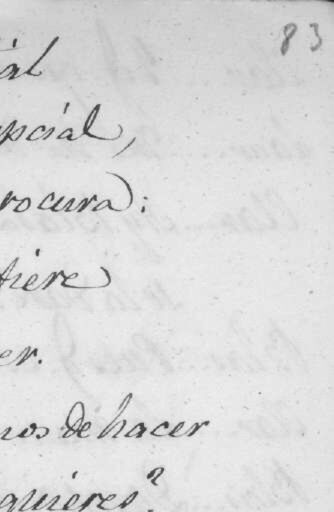 83
ial
upcial,
rocura:
tiere
er.
nos de hacer
quieres?